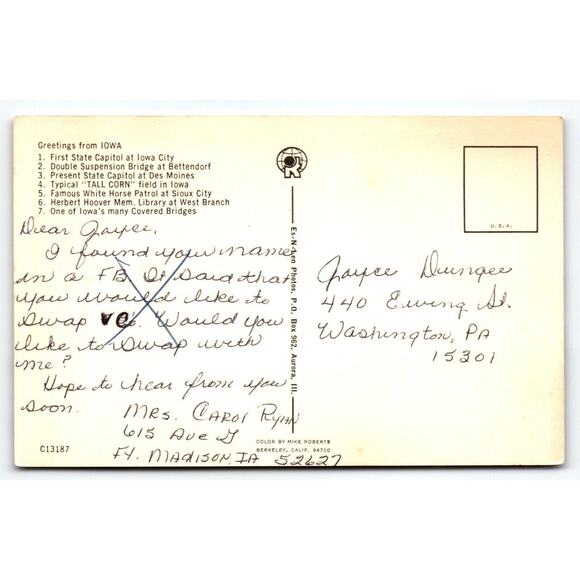 Greetings from IOWA
1. First State Capitol at Iowa City
2. Double Suspension Bridge at Bettendorf
3. Present State Capitol at Des Moines
4. Typical "TALL CORN" field in Iowa
5. Famous White Horse Patrol at Sioux City
6. Herbert Hoover Mem. Library at West Branch
7. One of Iowa's many Covered Bridges
Dear Joyce,
I found your name
in a FB It said that
you would like to
swap vc. Would you
like to swap with
me?
Hope to hear from you
soon.
MRS. CAROl RYAN
615 Ave G
Ft. MADISON, IA 52627
C13187
R
Es-N-Len Photos, P.O. Box 962, Aurora, Ill.
COLOR BY MIKE ROBERTS
BERKELEY, CALIF. 94710
U.S.A.
Joyce
440 Ewing St.
Washington, PA
15301